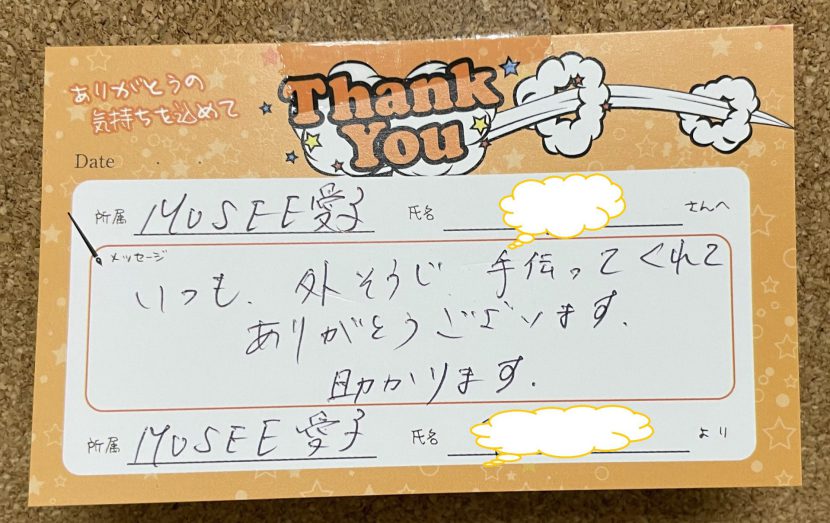 ありがとうの
気持ちを込めて
Thank
You
Date . .
所属 MUSEE愛子 氏名 さんへ
メッセージ
いつも、外そうじ 手伝ってくれて
ありがとうございます。
助かります。
所属 MUSEE愛子 氏名 より